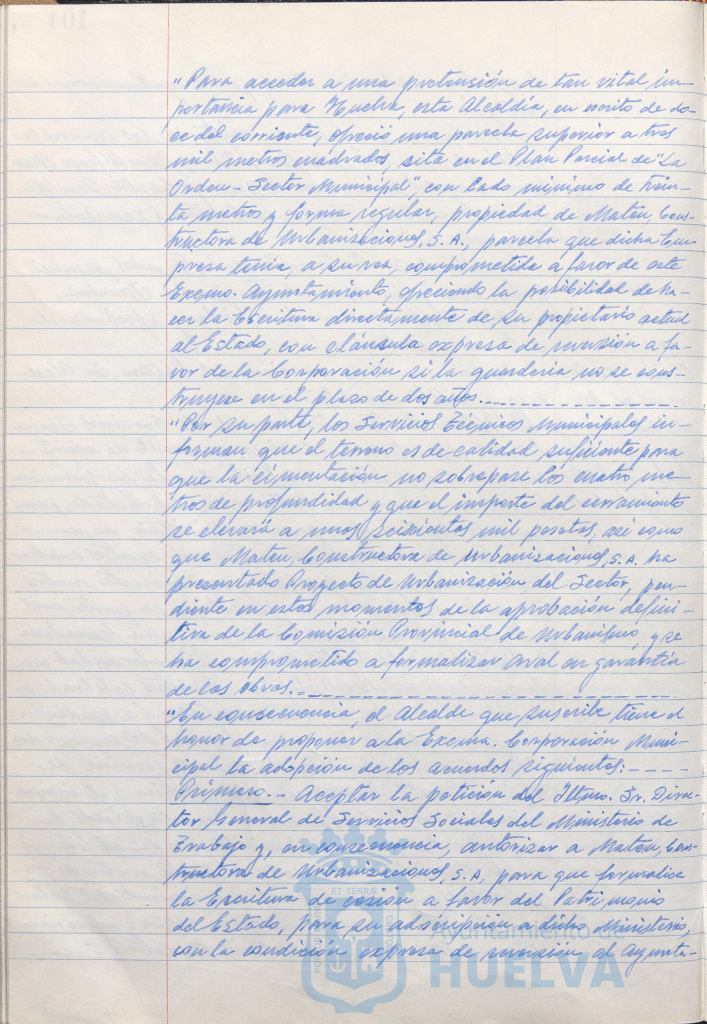 "Para acceder a una pretensión de tan vital im-
portancia para Huelva, esta Alcaldía, en escrito de do-
ce del corriente, ofreció una parcela superior a tres
mil metros cuadrados, sita en el Plan Parcial de "La
Orden - Sector Municipal", con lado mínimo de trein-
ta metros y forma regular, propiedad de Mateu, Cons-
tructora de Urbanizaciones, S.A., parcela que dicha Em-
presa tenía, a su vez, comprometida a favor de este
Excmo. Ayuntamiento, ofreciendo la posibilidad de ha-
cer la Escritura directamente de su propietario actual
al Estado, con cláusula expresa de reversión a fa-
vor de la Corporación si la guardería no se cons-
truyese en el plazo de dos años.
"Por su parte, los Servicios Técnicos Municipales in-
forman que el terreno es de calidad suficiente para
que la cimentación no sobrepase los cuatro me-
tros de profundidad y que el importe del cerramiento
se elevará a unas seiscientas mil pesetas, así como
que Mateu, Constructora de Urbanizaciones, S.A. ha
presentado Proyecto de Urbanización del Sector, pen-
diente en estos momentos de la aprobación defini-
tiva de la Comisión Provincial de Urbanismo, y se
ha comprometido a formalizar aval en garantía
de las obras.
"En consecuencia, el Alcalde que suscribe tiene el
honor de proponer a la Excma. Corporación Muni-
cipal la adopción de los acuerdos siguientes: - - -
Primero. - Aceptar la petición del Iltmo. Sr. Direc-
tor General de Servicios Sociales del Ministerio de
Trabajo y, en consecuencia, autorizar a Mateu, Cons-
tructora de Urbanizaciones, S.A, para que formalice
la Escritura de cesión a favor del Patrimonio
del Estado, para su adscripción a dicho Ministerio,
con la condición expresa de reversión al Ayunta-
Ayuntamiento
HUELVA